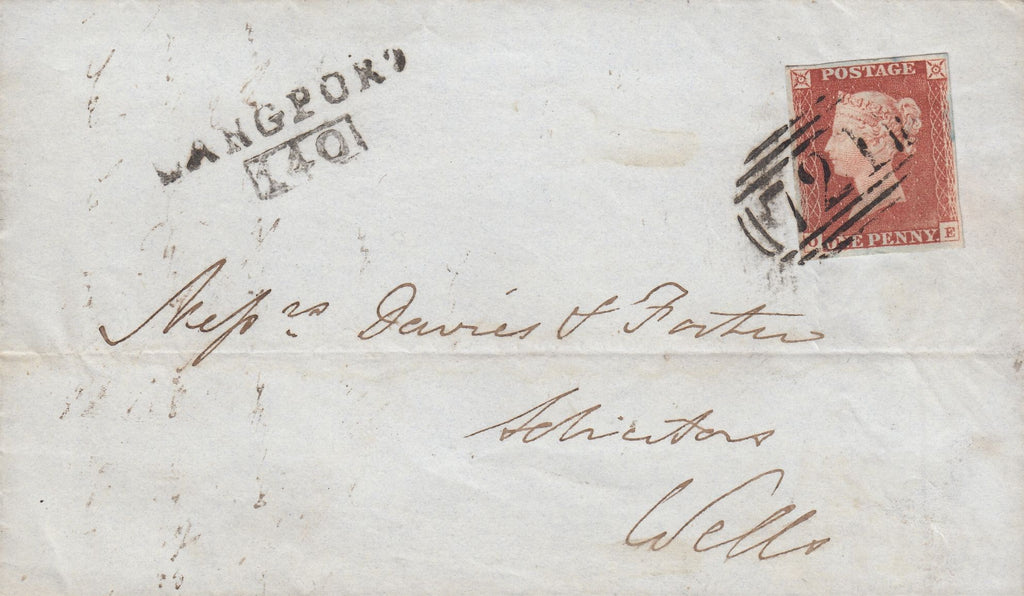 LANGPORT
140
POSTAGE
72
O E
ONE PENNY.
Messrs Davies & Foster
Solicitors
Wells